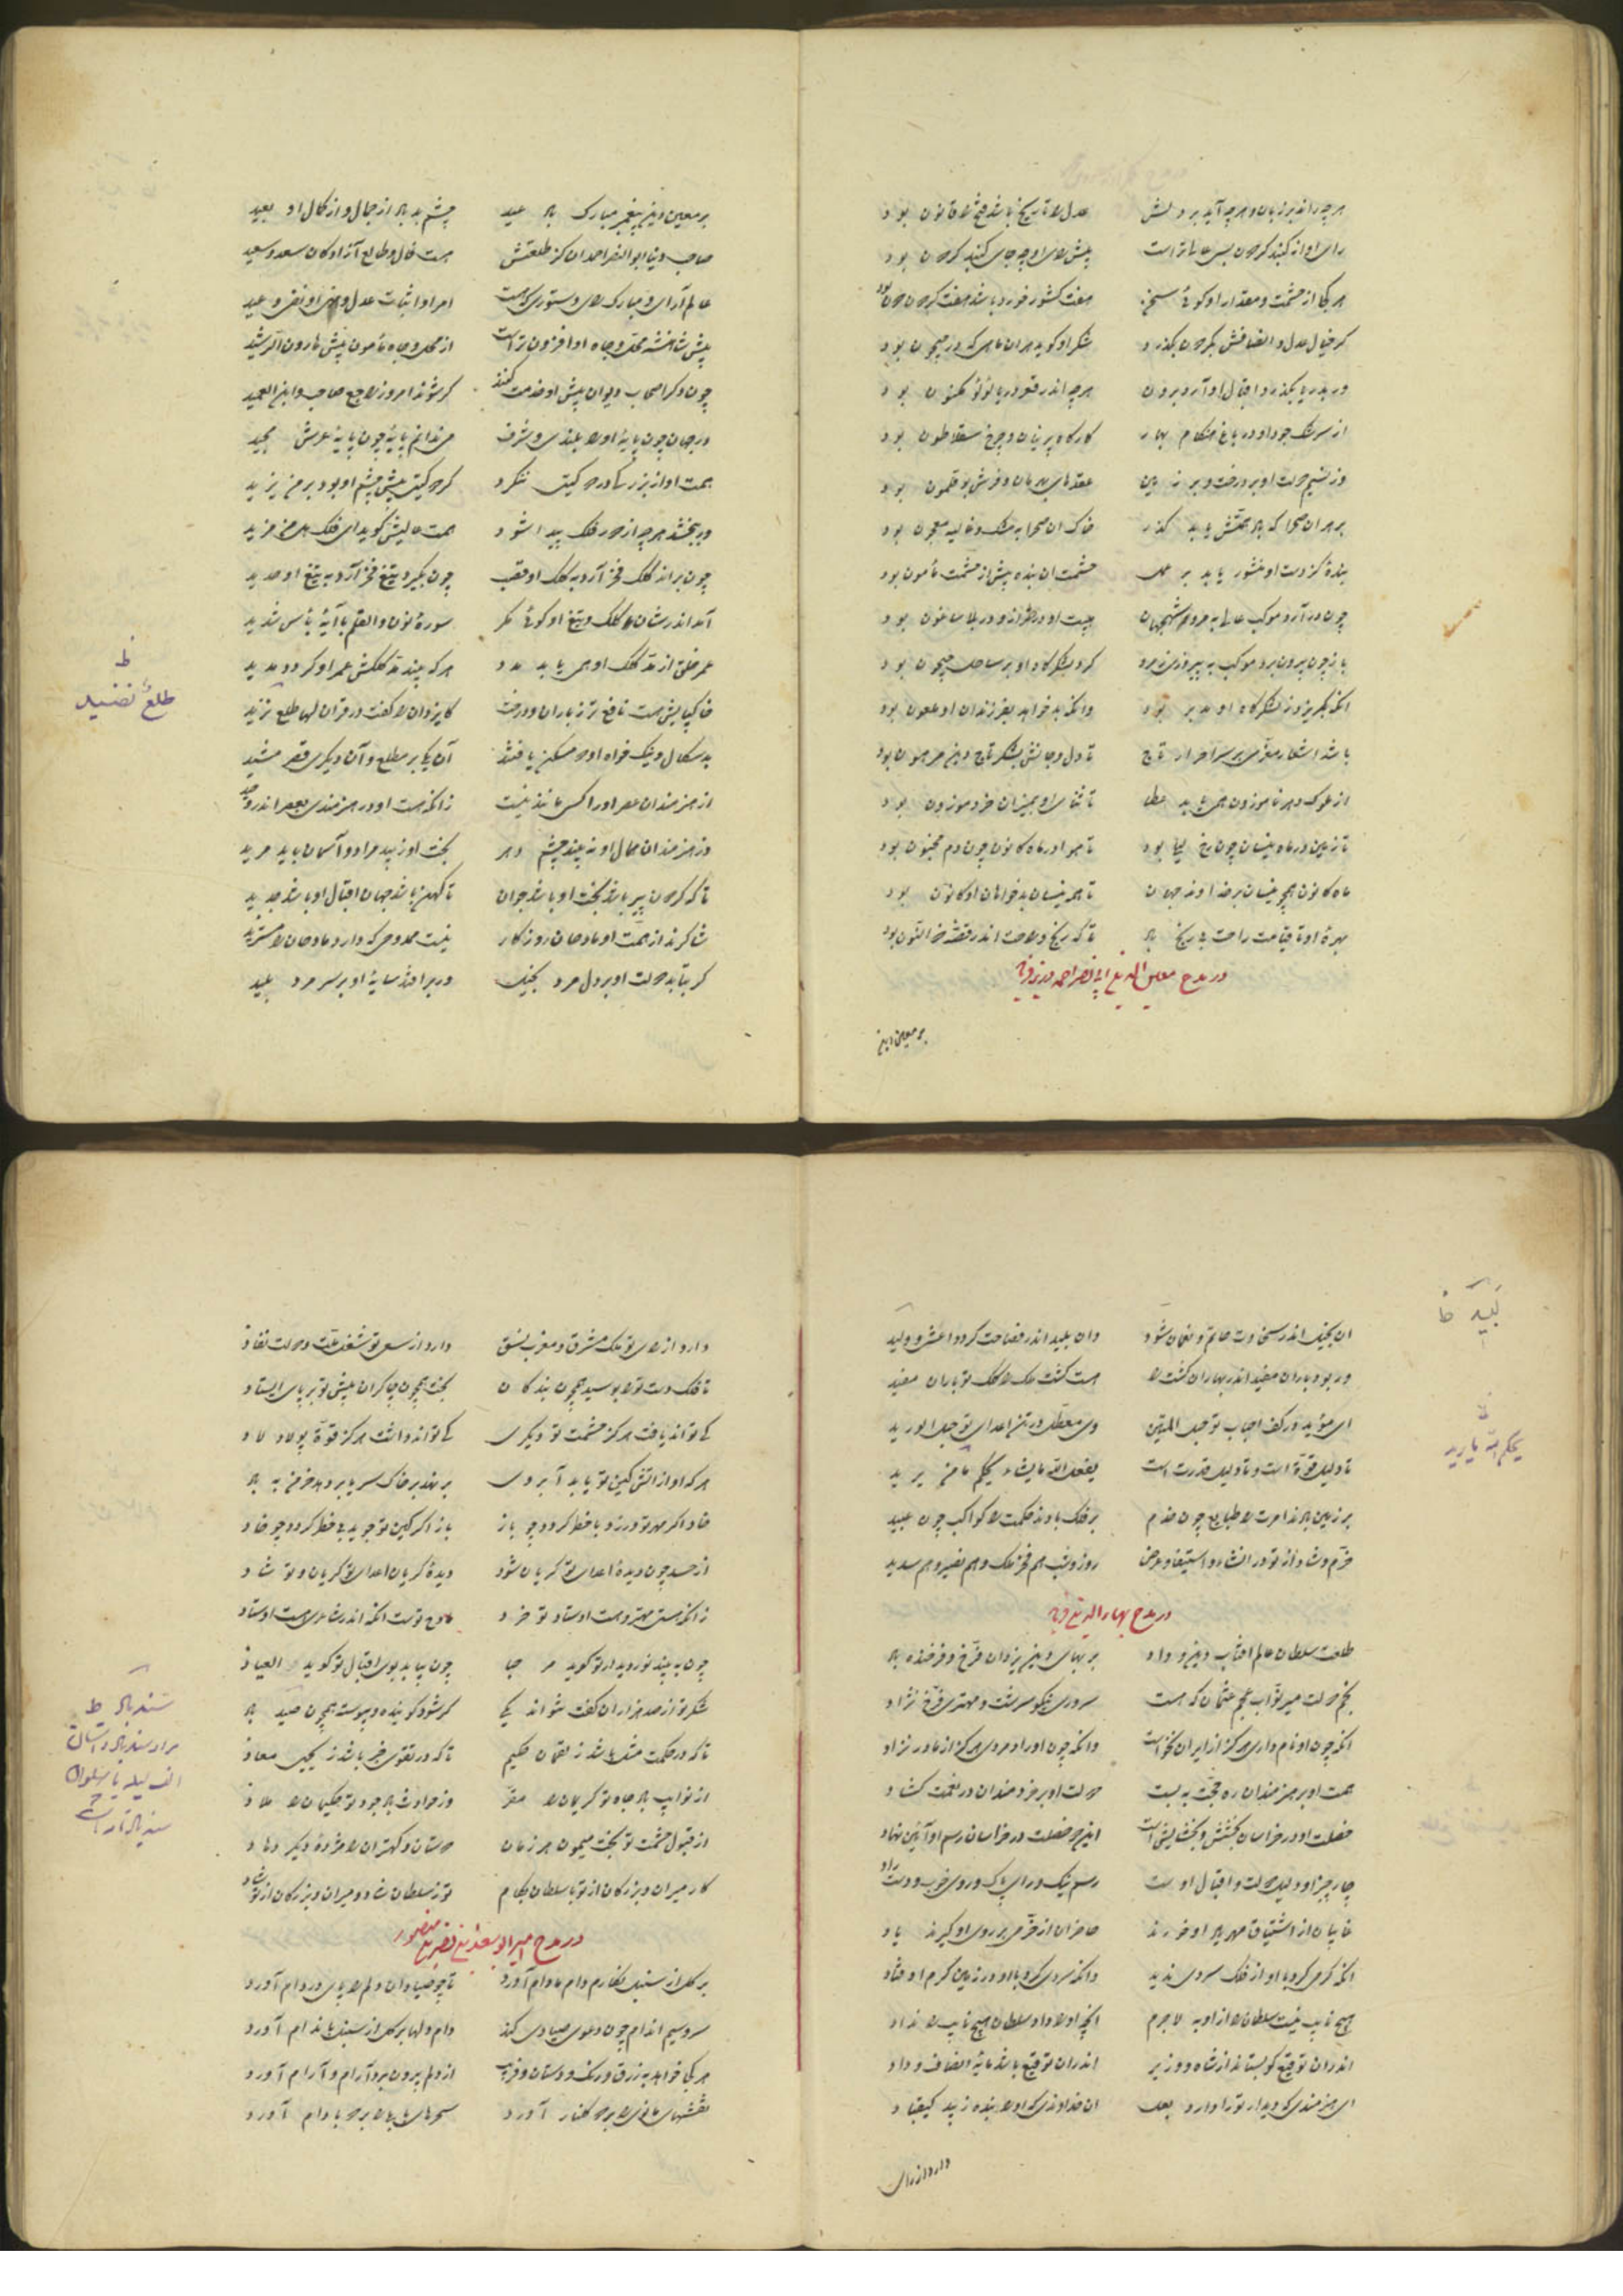 هرچه راند بر زبان و هرچه آید بر دلش عدل را تاریخ باشد فتح را قانون بود
رای او از گنبد گردون بسی عالیتر است پیش رای او چه جای گنبد گردون بود
هر کجا از حشمت و مقدار او گوئی سخن هفت کشور خورد باشد هفت گردون دون بود
گر خیال عدل و انصافش بگردون بگذرد شکر او گوید هر آن ماهی که در جیحون بود
ور بدریا بگذرد اقبال او آرد برون هرچه اندر قعر دریا لؤلؤ مکنون بود
از سرشک جود او در باغ هنگام بهار کارگاه پرنیان و چرخ سقلاطون بود
وز نسیم دولت او بر درخت و بر زمین عقدهای بهرمان و فرش بوقلمون بود
بر هر آن صحرا که باد همتش یابد گذر خاک آن صحرا به مشک و غالیه معجون بود
بندهٔ کز دست او منشور یابد بر عمل حشمت آن بنده بیش از حشمت مأمون بود
چون درآرد موکب عالی به مرو شهجهان هیبت او در طراز و در بلاساغون بود
باز چون بیرون برد موکب به پیروزی ز مرو گرد لشکرگاه او بر ساحل جیحون بود
آنکه بگریزد ز لشکرگاه او مدبر بود وانکه بدخواهد بفرزندان او ملعون بود
باشد اشعار معزی بر سر احرار تاج تا دل و جانش بشکر تاج دین مرهون بود
از ملوک دهر ناموزون همی یابد عطا تا ثنای او بمیزان خرد موزون بود
تا زمین در ماه نیسان چون رخ لیلی بود تا هوا در ماه کانون چون دم مجنون بود
ماه کانون همچو نیسان بر خداوند جهان تا همه نیسان بدخواهان او کانون بود
بهرهٔ او تا قیامت راحت بی رنج باد تا که رنج و راحت اندر قصهٔ ذاالنون بود
در مدح معین الدین ابی نصر احمد وزیر فرماید
بر معین دین
بر معین دین پیغمبر مبارک باد عید چشم بد باد از جمال و از کمال او بعید
صاحب دنیا ابوالنصر احمد آن کز طلعتش هست فال و طالع آزادگان سعد و سعید
عالم آرای و مبارک رای دستوری که هست امر او اثبات عدل و نهی او نفی وعید
پیش شاهنشه محل و جاه او افزون تر است از محل و جاه مأمون پیش هارون الرشید
چون دگر اصحاب دیوان پیش او خدمت کنند گر شوند امروز راجع صاحب و ابن العمید
در جهان چون پایهٔ او را بلندی و شرف می ندانم پایهٔ چون پایهٔ عرش مجید
همت او از بزرگی در دو گیتی ننگرد گر دو گیتی پیش چشم او بود بر من یزید
ور ببخشد هرچه از دور فلک پیدا شود همت عالیش گوید ای فلک هل من مزید
چون براند کلک فخر آرد به کلک او قصب چون بگیرد تیغ فخر آرد به تیغ او حدید
آمد اندر شان کلک و تیغ او گوئی مگر سورهٔ نون والقلم با آیهٔ بأس شدید
عمر خلق از مد کلک او همی یابد مدد هر که بیند مد کلکش عمر او گردد مدید
خاکپایش هست نافع تر ز باران و درخت کایزدان را گفت در قرآن لها طلع نضید
ظ
طلعٌ نضید
بدسگال و نیک خواه او دو مسکن یافتند آن یکی بر مطلع و آن دیگری قصر مشید
از هنرمندان عصر او را کسی مانند نیست زانکه هست او در هنرمندی بعصر اندر وحید
وز هنرمندان همال او نه بیند چشم دهر بخت او زیبد مراد و آسمان باید مرید
تا که گردون پیر باشد بخت او باشد جوان تا کهن باشد جهان اقبال او باشد جدید
شاکرند از همت او مادحان روزگار نیست ممدوحی که دارد مادحان را مستزید
گر بتابد دولت او بر دل مرد بخیل ور برافتد سایهٔ او بر سر مرد بلید
آن بخیل اندر سخاوت حاتم و نعمان شود وان بلید اندر فصاحت گردد اعشی و ولید
ور بود باران مفید اندر بهاران کشت را هست کشت ملک را کلک تو باران مفید
ای مؤید در کف احباب تو حبل المتین وی معطل در تن اعدای تو حبل الورید
تا دلیل قوّة است و تا دلیل قدرت است یفعل الله مایشاء یحکم ما یرید
یحکم الله یا یرید
بر زمین بادند امرت را طبایع چون خدم بر فلک بادند حکمت را کواکب چون عبید
خرم و شاد از تو در انشاء و استیفا و عرض روز و شب هم فخر ملک و هم نصیر و هم سدید
در مدح بهاء الدین فرماید
طلعت سلطان عالم آفتاب دین و داد بر بهای دین یزدان فرخ و فرخنده باد
نجم دولت میر نواب عجم عثمان که هست سروری نیکو سرشت و مهتری فرخ نژاد
آنکه چون او نام داری هرگز از ایران نخاست وانکه چون او رادمردی هرگز از مادر نزاد
همت او بر هنرمندان ره محنت به بست دولت او بر خردمندان در نعمت گشاد
خصلت او در خراسان بخشش و بخشایش است این دو خصلت در خراسان رسم او آئین نهاد
چار چیز او دلیل دولت و اقبال اوست رسم نیک و رای پاک و روی خوب و دست راد
غایبان از اشتیاق مهر باد او خورند حاضران از خرمی بر روی او گیرند یاد
آنکه گرمی کرد با او از فلک سردی ندید وانکه سردی کرد با او در زمین گرم اوفتاد
هیچ نایب نیست سلطان را ازو به لاجرم آنچه او را داد سلطان هیچ نایب را نداد
اندران توقیع کو بستاند از شاه و وزیر اندران توقیع باشد مایهٔ انصاف و داد
ای هنرمندی که دیدار ترا دارد بفال آن خداوندی که او را بنده زیبد کیقباد
دارد از رای
دارد از رای تو ملک مشرق و مغرب نسق دارد از سعی تو شغل ملت و دولت نفاذ
تا فلک دست تو را بوسید همچون بندگان بخت همچون چاکران پیش تو بر پای ایستاد
کی تواند یافت هرگز حشمت تو دیگری کی تواند داشت هرگز قوّة پولاد لاد
هر که او از آتش کین تو یابد آبروی بر نهد بر خاک سر یا بر دهد خرمن به باد
خاد اگر مهر تو ورزد با خطر گردد چو باز باز اگر کین تو جوید بی خطر گردد چو خاد
از حسد چون دیدهٔ اعدای تو گریان شود دیدهٔ گریان اعدای تو گریان و تو شاد
زانکه هستی مهتر و هست اوستاد تو خرد مادح تو هست آنکه اندر شاعری هست اوستاد
چون به بیند نور دیدار تو گوید مرحبا چون بیابد بوی اقبال تو گوید العیاذ
شکر تو از صد هزاران گفت نتواند یکی گر شود گوینده و پیوسته چون صید باد
سندباد ظ
تا که در حکمت مثل باشد ز لقمان حکیم تا که در تقوی خبر باشد ز یحیی معاذ
از نوایب باد جاه تو کریمان را مقر وز حوادث باد جود تو حکیمان را ملاذ
از قبول حشمت تو بخت میمون هر زمان دوستان و کهتران را مژدهٔ دیگر دهاد
کار میران و بزرگان از تو با سلطان بکام تو ز سلطان شاد و میران و بزرگان از تو شاد
در مدح امیر ابو سعد بن نصر بن منصور
بر گل از سنبل نگارم دام مادام آورد تا چو صیادان دلم را پای در دام آورد
سرو سیم اندام چون دعوی صیادی کند دام دلها بر گل از سنبل باندام آورد
هر کجا خواهد به زرق و رنگ و دستان و فریب از دلم بیرون برد آرام و آرام آورد
نقشهای مانی را بر دو گلنار آورد سحرهای بابلی را بر دو بادام آورد